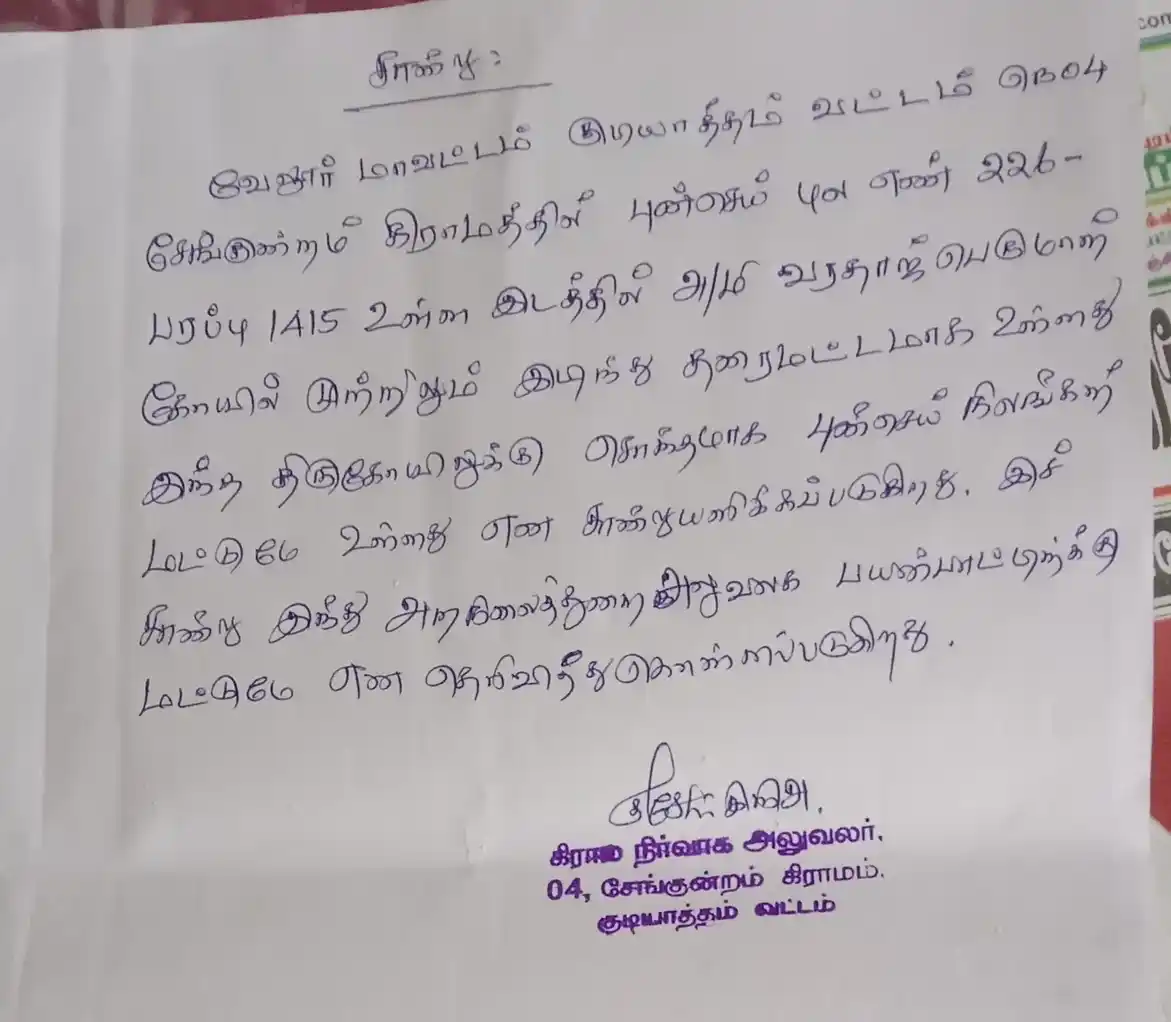 சான்று :
வேலூர் மாவட்டம் குடியாத்தம் வட்டம் நெ04
சேங்குன்றம் கிராமத்தில் புன்செய் புல எண் 226-
பரப்பு 1415 உள்ள இடத்தில் அ/மி வரதராஜ பெருமாள்
கோயில் முற்றிலும் இடிந்து தரைமட்டமாக உள்ளது
இந்த திருகோயிலுக்கு சொந்தமாக புன்செய் நிலங்கள்
மட்டுமே உள்ளது என சான்றுயளிக்கப்படுகிறது. இச்
சான்று இந்து அறநிலைத்துறை அலுவலக பயன்பாட்டிற்க்கு
மட்டுமே என தெரிவித்துகொள்ளப்படுகிறது.
கிராம நிர்வாக அலுவலர்.
04, சேங்குன்றம் கிராமம்.
குடியாத்தம் வட்டம்